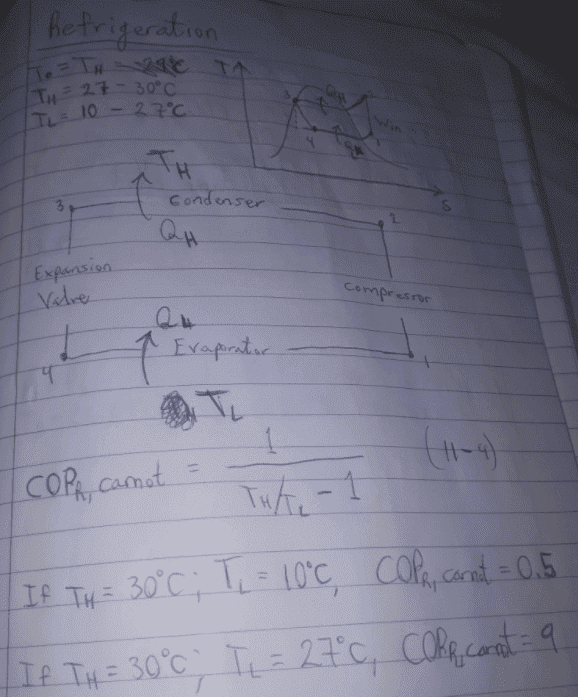 Refrigeration
T₀ = T_H
T_H = 27 - 30°C
T_L = 10 - 27°C
T
3 Q_H 2
Win
4 1
S
T_H
3 Condenser 2
Q_H
Expansion
Valve
Compressor
Q_H
4 Evaporator 1
T_L
COP_R, carnot = 1 / (T_H/T_L - 1) (11-4)
If T_H = 30°C; T_L = 10°C, COP_R, carnot = 0.5
If T_H = 30°C; T_L = 27°C, COP_R, carnot = 9